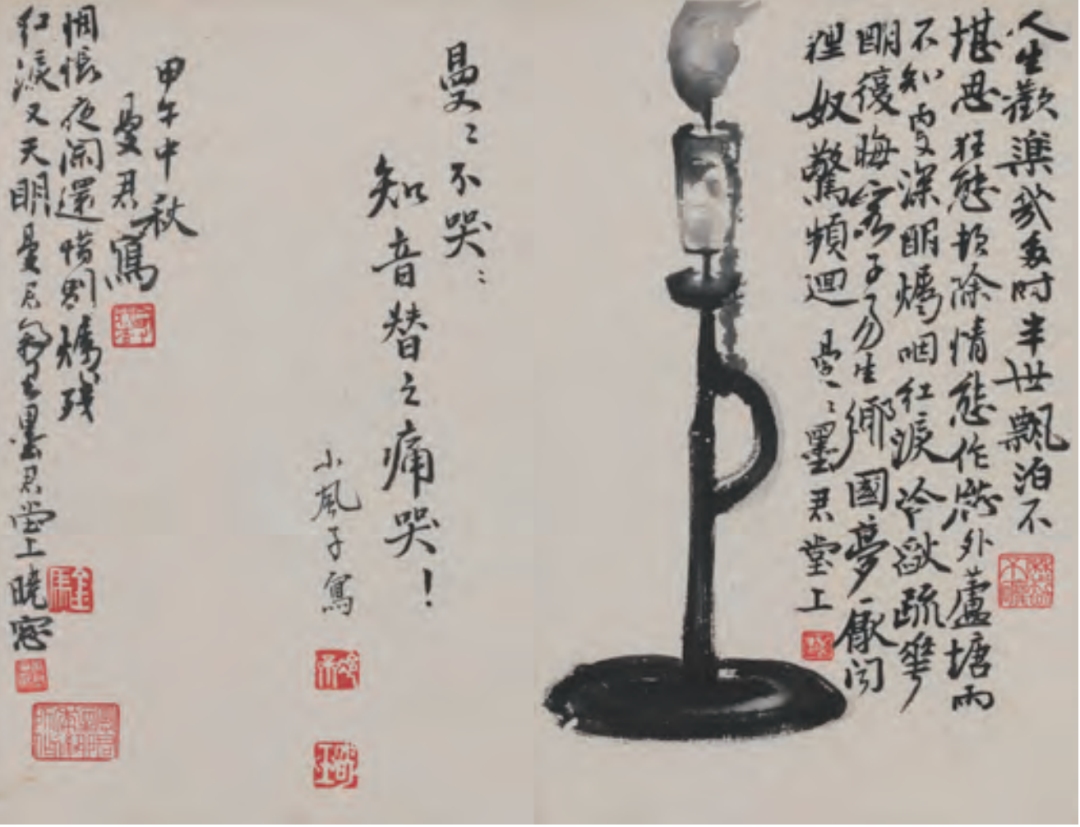 人生歡樂幾多時半世飄泊不
堪思狂態除情態作窓外蘆塘雨
不知更深明燭咽紅淚冷疏華
明復晦客子勿生鄉國夢厭闻
裡奴驚頻迴 曼〻墨君堂上
曼〻不哭〻
知音替之痛哭！
小風子寫
甲午中秋
曼君寫
惆悵夜闌還惜別燭殘
紅淚又天明曼君墨君堂上曉窓